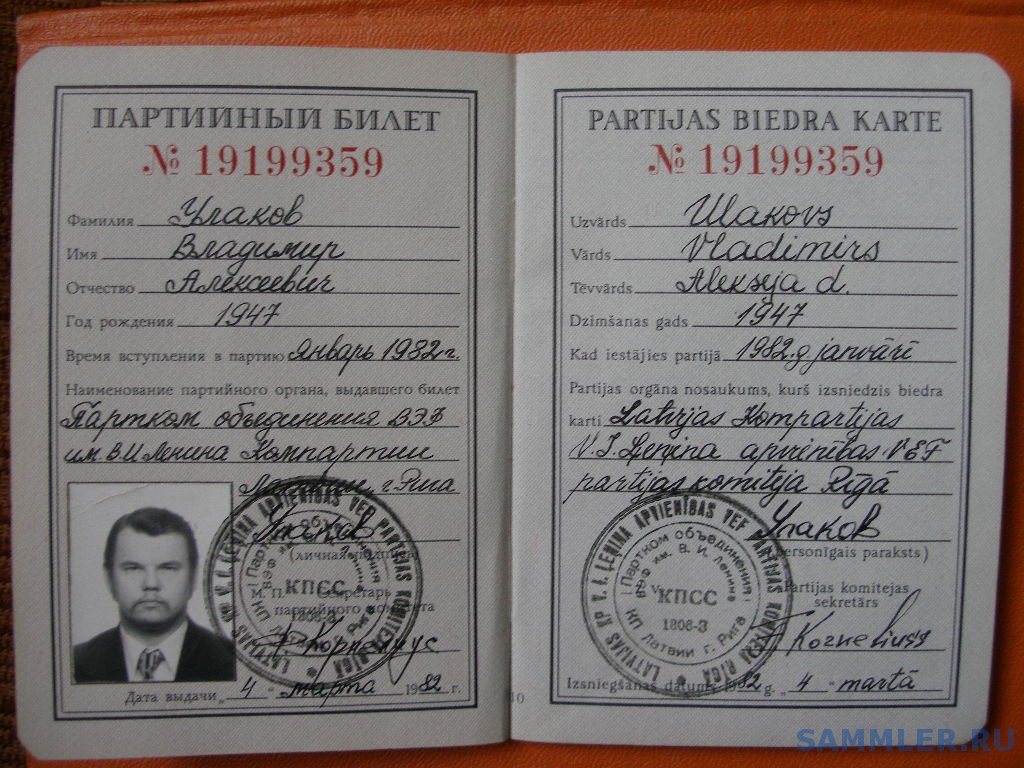 ПАРТИЙНЫЙ БИЛЕТ
№ 19199359
Фамилия Улаков
Имя Владимир
Отчество Алексеевич
Год рождения 1947
Время вступления в партию Январь 1982 г.
Наименование партийного органа, выдавшего билет
Партком объединения ВЭФ
им. В.И. Ленина Компартии
Латвии, г. Рига
Улаков
(личная подпись)
М. П. Секретарь
партийного комитета
Корнелиус
Дата выдачи „4“ марта 1982 г.
LATVIJAS KP V. I. ĻEŅINA APVIENĪBAS VEF PARTIJAS KOMITEJA RĪGĀ
Партком объединения ВЭФ им. В. И. Ленина КП Латвии г. Рига
КПСС
1806-3
PARTIJAS BIEDRA KARTE
№ 19199359
Uzvārds Ulakovs
Vārds Vladimirs
Tēvvārds Alekseja d.
Dzimšanas gads 1947
Kad iestājies partijā 1982.g. janvārī
Partijas orgāna nosaukums, kurš izsniedzis biedra
karti Latvijas Kompartijas
V. I. Ļeņina apvienības VEF
partijas komitēja Rīgā
Улаков
(personīgais paraksts)
Partijas komitejas
sekretārs
Kornēliuss
Izsniegšanas datums 1982 g. „4“ martā
LATVIJAS KP V. I. ĻEŅINA APVIENĪBAS VEF PARTIJAS KOMITEJA RĪGĀ
Партком объединения ВЭФ им. В. И. Ленина КП Латвии г. Рига
КПСС
1806-3
10
SAMMLER.RU